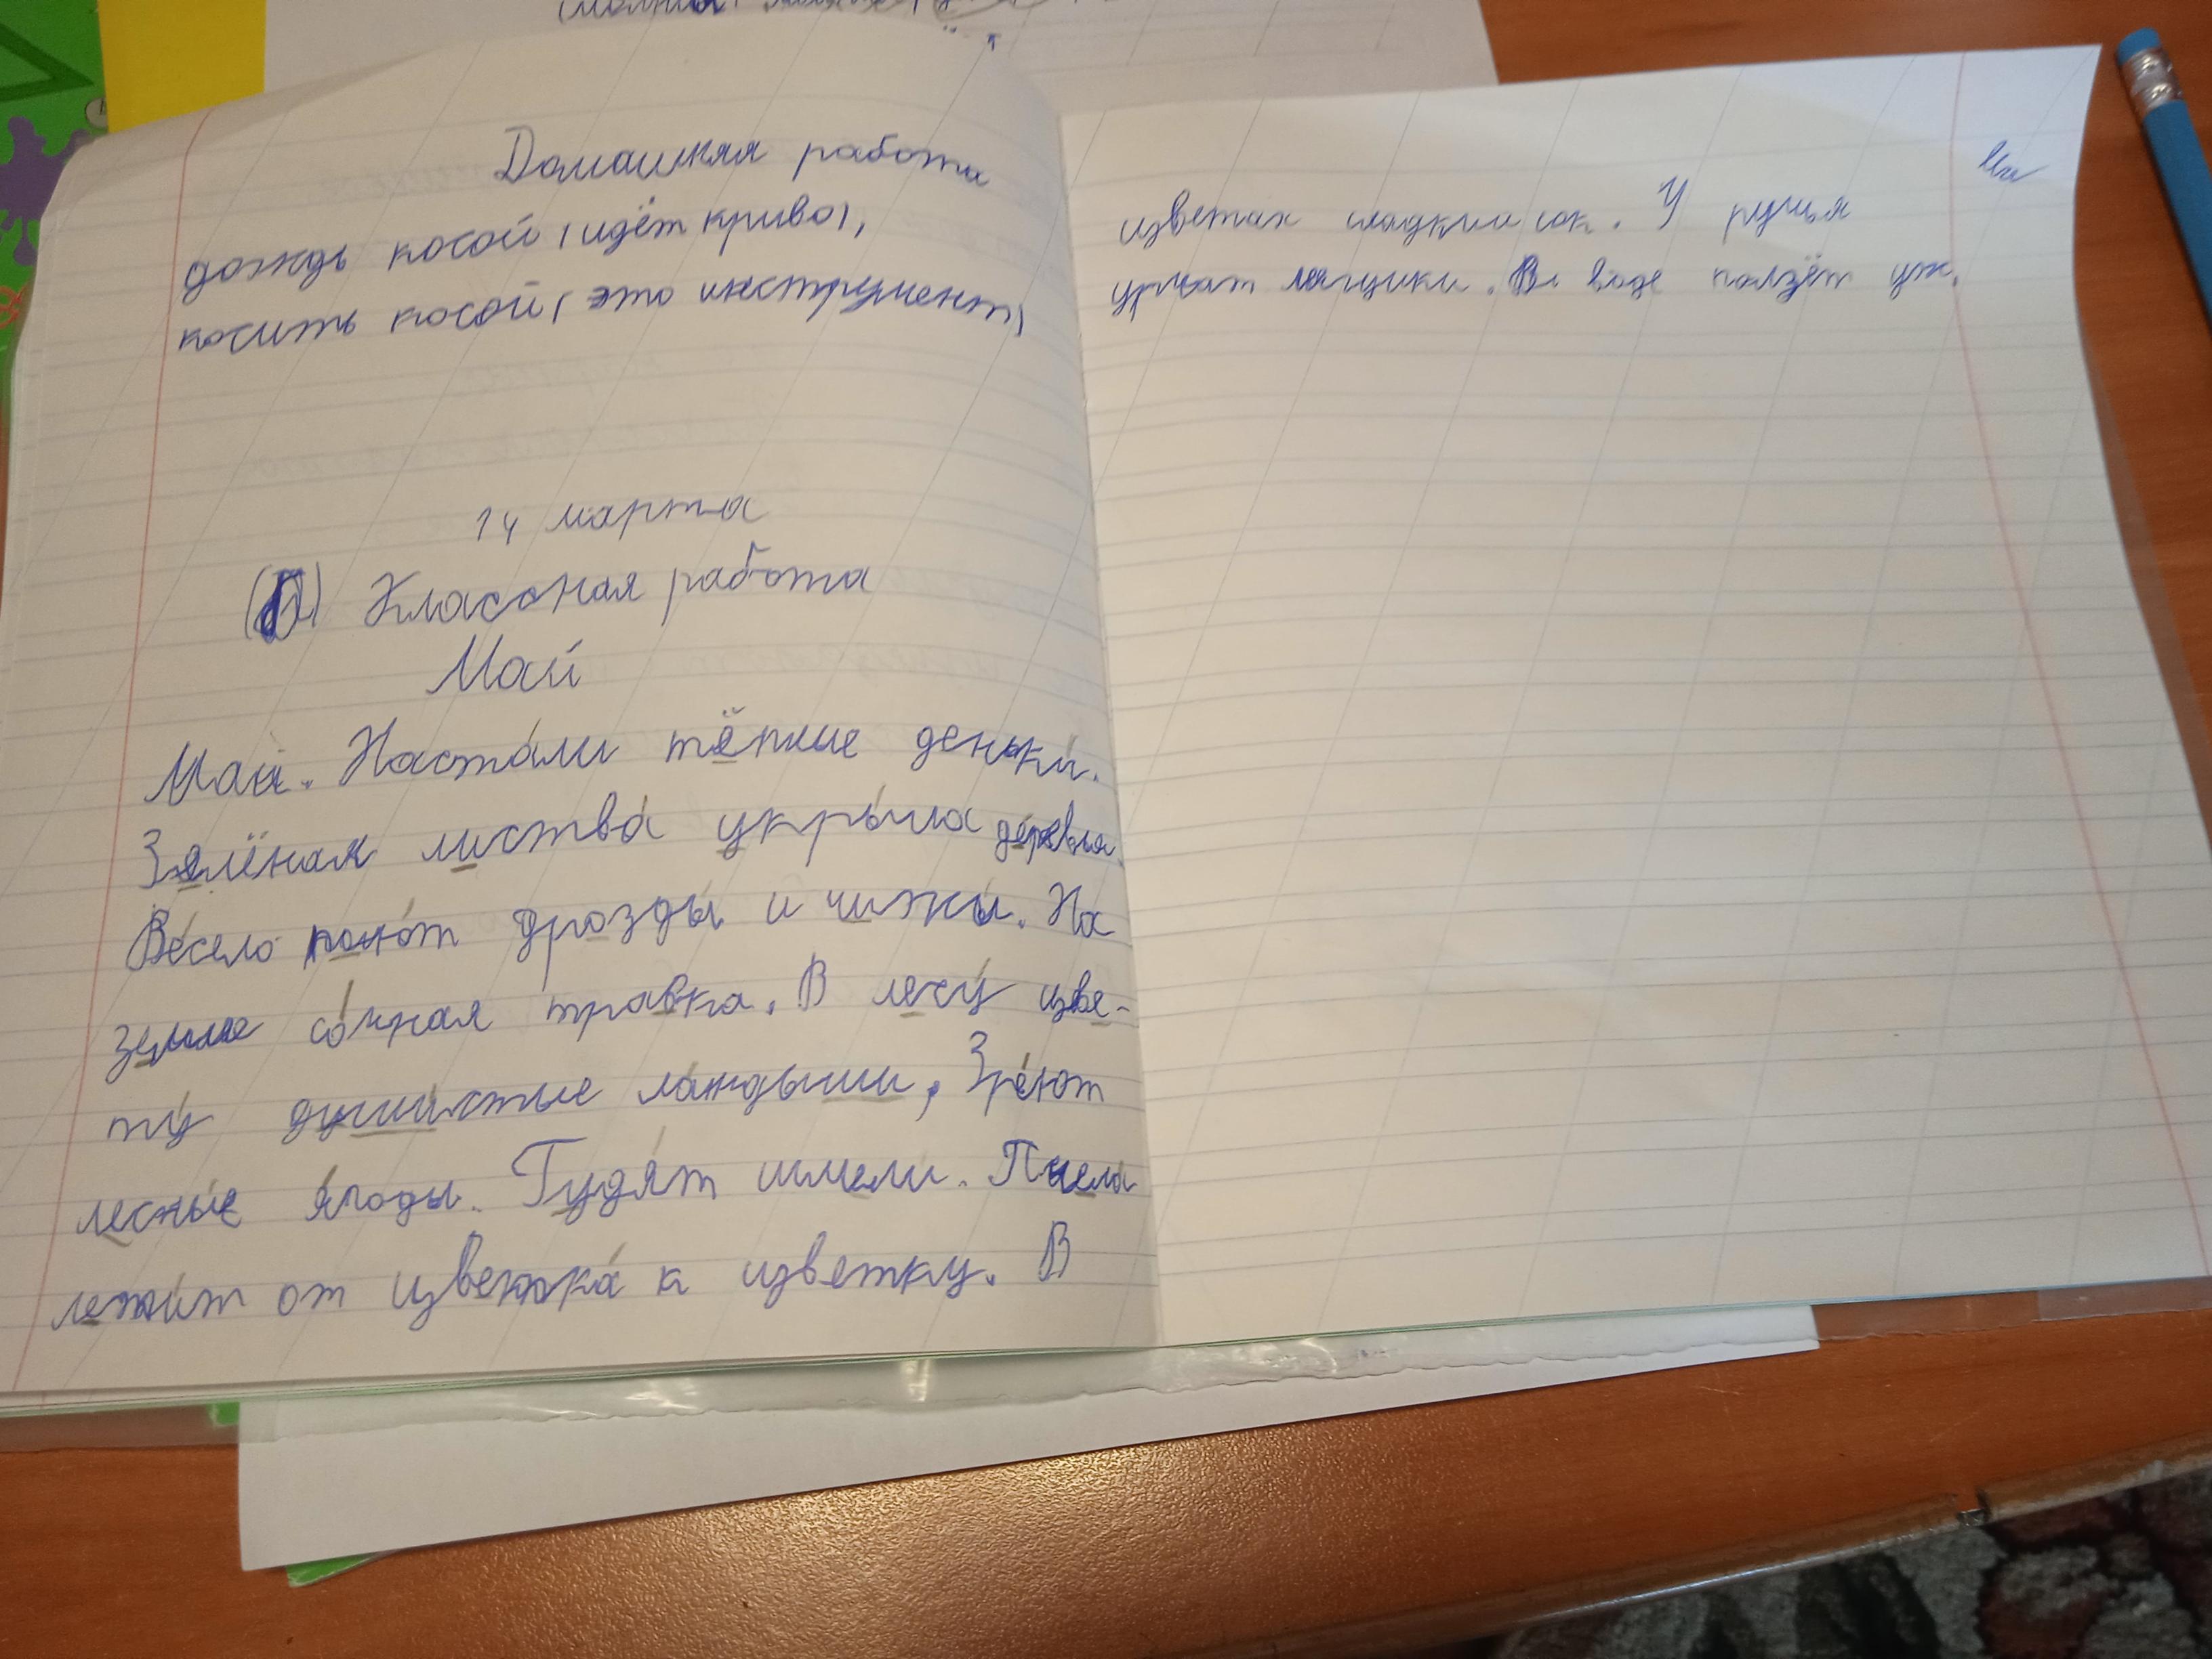 Домашняя работа
дождь косой (идёт криво),
косить косой( это инструмент)
14 марта
Классная работа
Май
Май. Настали тёплие деньки.
Зелёная листва укрыла деревья.
Весело поют дрозды и чижи. На
земле сочная травка. В лесу цве-
ту душистые ландыши, Зреют
лесные ягоды. Гудят шмели. Пчела
летит от цветка к цветку. В
цветах сладкий сок. У ручья
урчат лягушки. В воде ползёт уж.